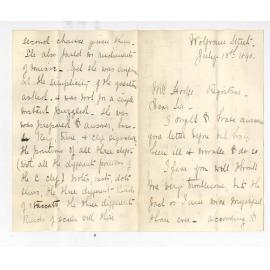 Wolfram Street,
July 13th 1890.
Will Hodge. Registrar.
Dear Sir.
I ought to have answered
your letter before but having
been ill & unable to do so.
I fear you will think
me very troublesome, but the
fact is I am more mystified
than ever. according to
second chance given him.
She also failed in rudiments
of music. Yet she was
at the simplicity of the questions
asked. & was not for a single
moment puzzled. She was
the positions of all three clefs.
not all the different positions of
the C clef) Notes, rests, dots
slurs, the three different kinds
of staccato the three different
kinds of scales with their